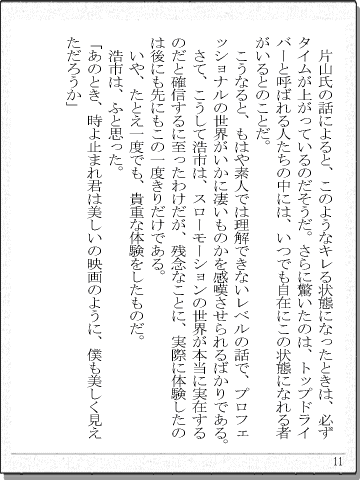 片山氏の話によると、このようなキレる状態になったときは、必ず
タイムが上がっているのだそうだ。さらに驚いたのは、トップドライ
バーと呼ばれる人たちの中には、いつでも自在にこの状態になれる者
がいるとのことだ。
こうなると、もはや素人では理解できないレベルの話で、プロフェ
ッショナルの世界がいかに凄いものかを感嘆させられるばかりである。
さて、こうして浩市は、スローモーションの世界が本当に実在する
のだと確信するに至ったわけだが、残念なことに、実際に体験したの
は後にも先にもこの一度きりだけである。
いや、たとえ一度でも、貴重な体験をしたものだ。
浩市は、ふと思った。
「あのとき、時よ止まれ君は美しいの映画のように、僕も美しく見え
ただろうか」
11